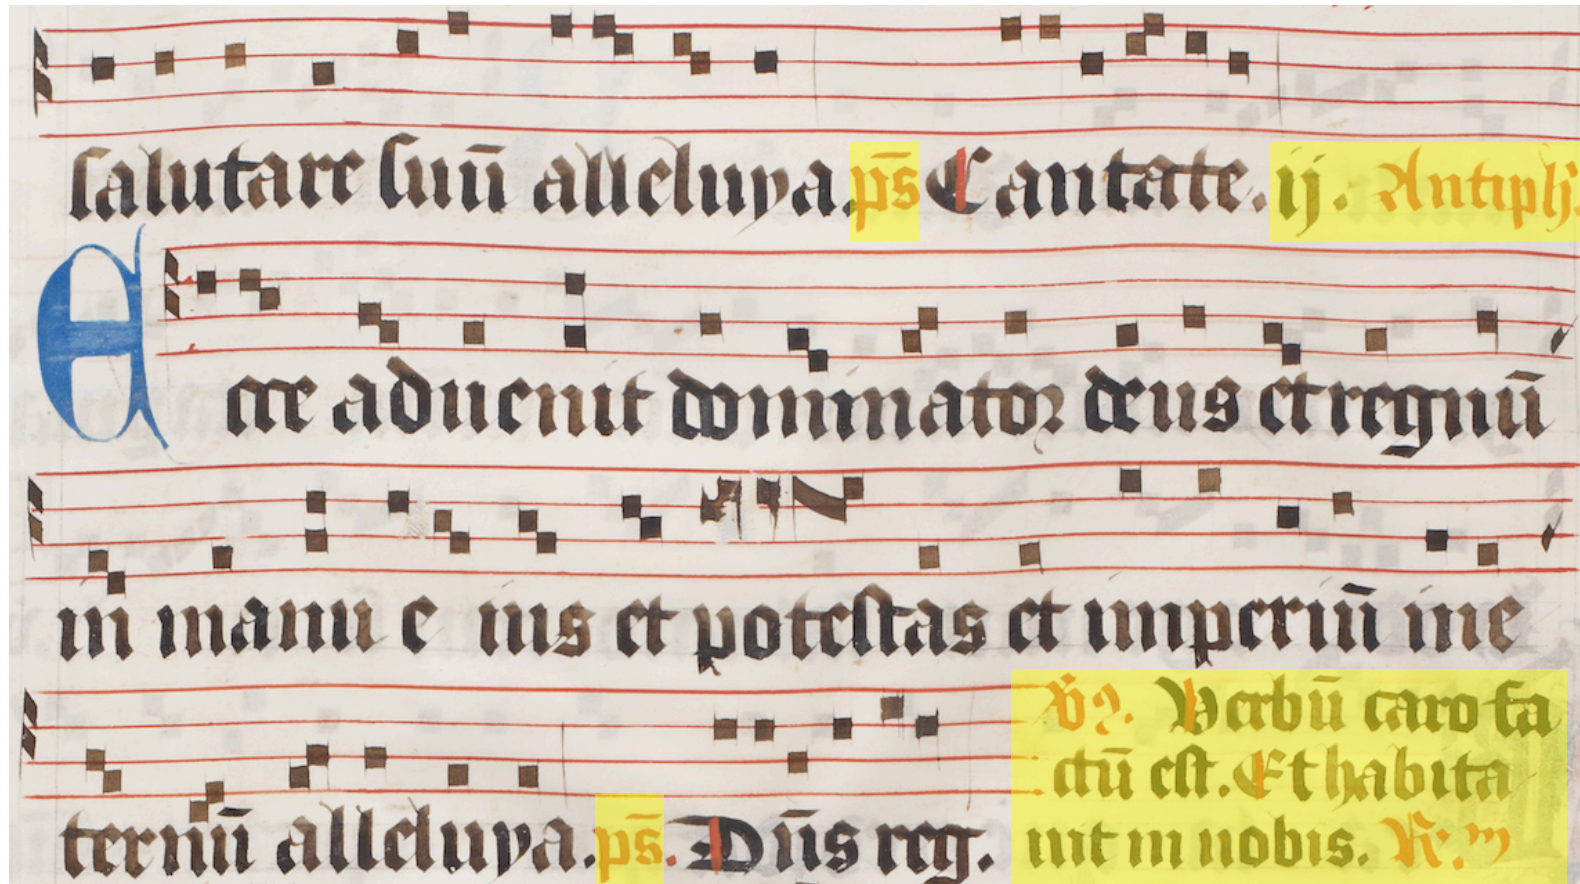 salutare suū alleluya. ps̄ Cantate. ij. Antiph̄.
Ecce aduenit dominator deus et regnū
in manu e ius et potestas et imperiū in e
ternū alleluya. ps̄. Dn̄s reg.
Vs. Verbū caro fa
ctū est. Et habita
uit in nobis. R.